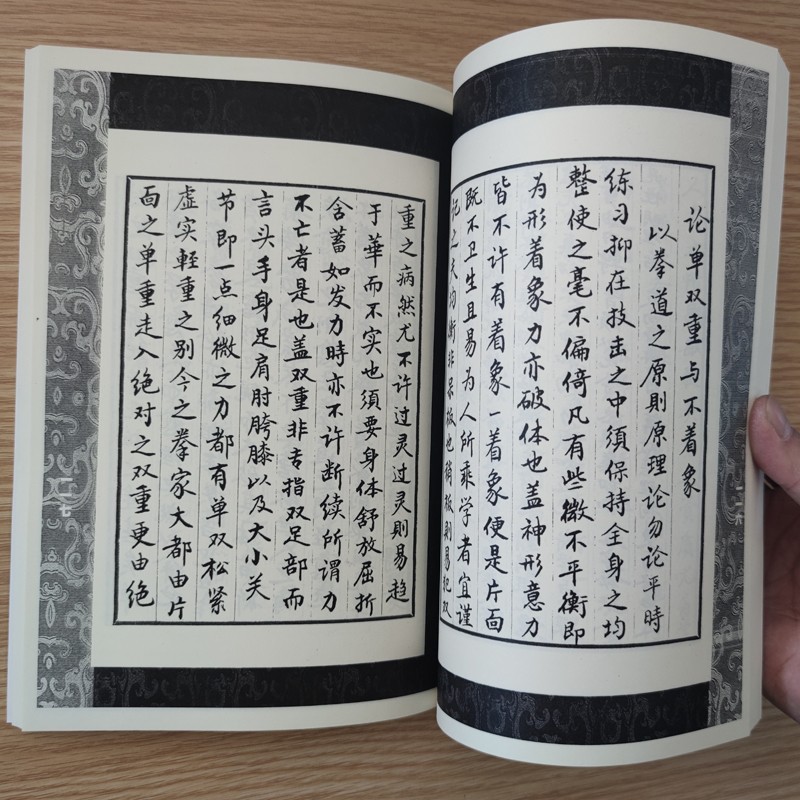 论单双重与不着象
以拳道之原則原理论勿论平時
练习抑在技击之中須保持全身之均
整使之毫不偏倚凡有些微不平衡即
为形着象力亦破体也盖神形意力
皆不许有着象一着象便是片面
既不卫生且易为人所乘学者宜谨
记之夫均衡非呆板也稍板則易犯双
二六
重之病然尤不许过灵过灵則易趋
于華而不实也須要身体舒放屈折
含蓄如发力時亦不许断续所谓力
不亡者是也盖双重非专指双足部而
言头手身足肩肘胯膝以及大小关
节即一点细微之力都有单双松紧
虚实輕重之别今之拳家大都由片
面之单重走入绝对之双重更由绝
二七